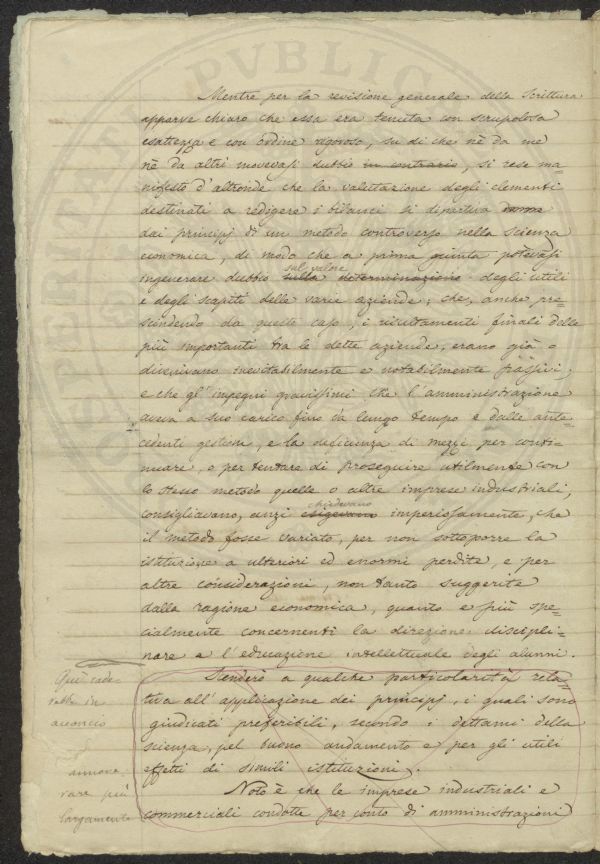 Mentre per la revisione generale della Scrittura
apparve chiaro che essa era tenuta con scrupolosa
esattezza e con ordine rigoroso, su di che nè da me
nè da altri movevasi dubbio in contrario, si rese ma=
nifesto d'altronde che la valutazione degli elementi
destinati a redigere i bilanci si dipartiva
dai principj di un metodo controverso nella scienza
economica, di modo che a prima giunta potevasi
sul valore
ingenerare dubbio sulla determinazione degli utili
e degli scapiti delle varie aziende; che, anche pre=
scindendo da queste cose, i risultamenti finali delle
più importanti tra le dette aziende, erano già o
divenivano inevitabilmente e notabilmente passivi;
e che gl'impegni gravissimi che l'amministrazione
aveva a suo carico fino da lungo tempo e dalle ante=
cedenti gestioni, e la deficienza di mezzi per conti=
nuare, o per tentare di proseguire utilmente con
lo stesso metodo quelle o altre imprese industriali,
chiedevano
consigliavano, anzi esigevano imperiosamente, che
il metodo fosse variato, per non sottoporre la
istituzione a ulteriori ed enormi perdite, e per
altre considerazioni, non tanto suggerite
dalla ragione economica, quanto e più spe=
cialmente concernenti la direzione discipli=
nare e l'educazione intellettuale degli alunni.
Qui cade=
rebbe in
acconcio
annove
rare più
largamente
Scenderò a qualche particolarità rela=
tiva all'applicazione dei principj, i quali sono
giudicati preferibili, secondo i dettami della
scienza, pel buono andamento e per gli utili
effetti di simili istituzioni.
Noto è che le imprese industriali e
commerciali condotte per conto di amministrazioni